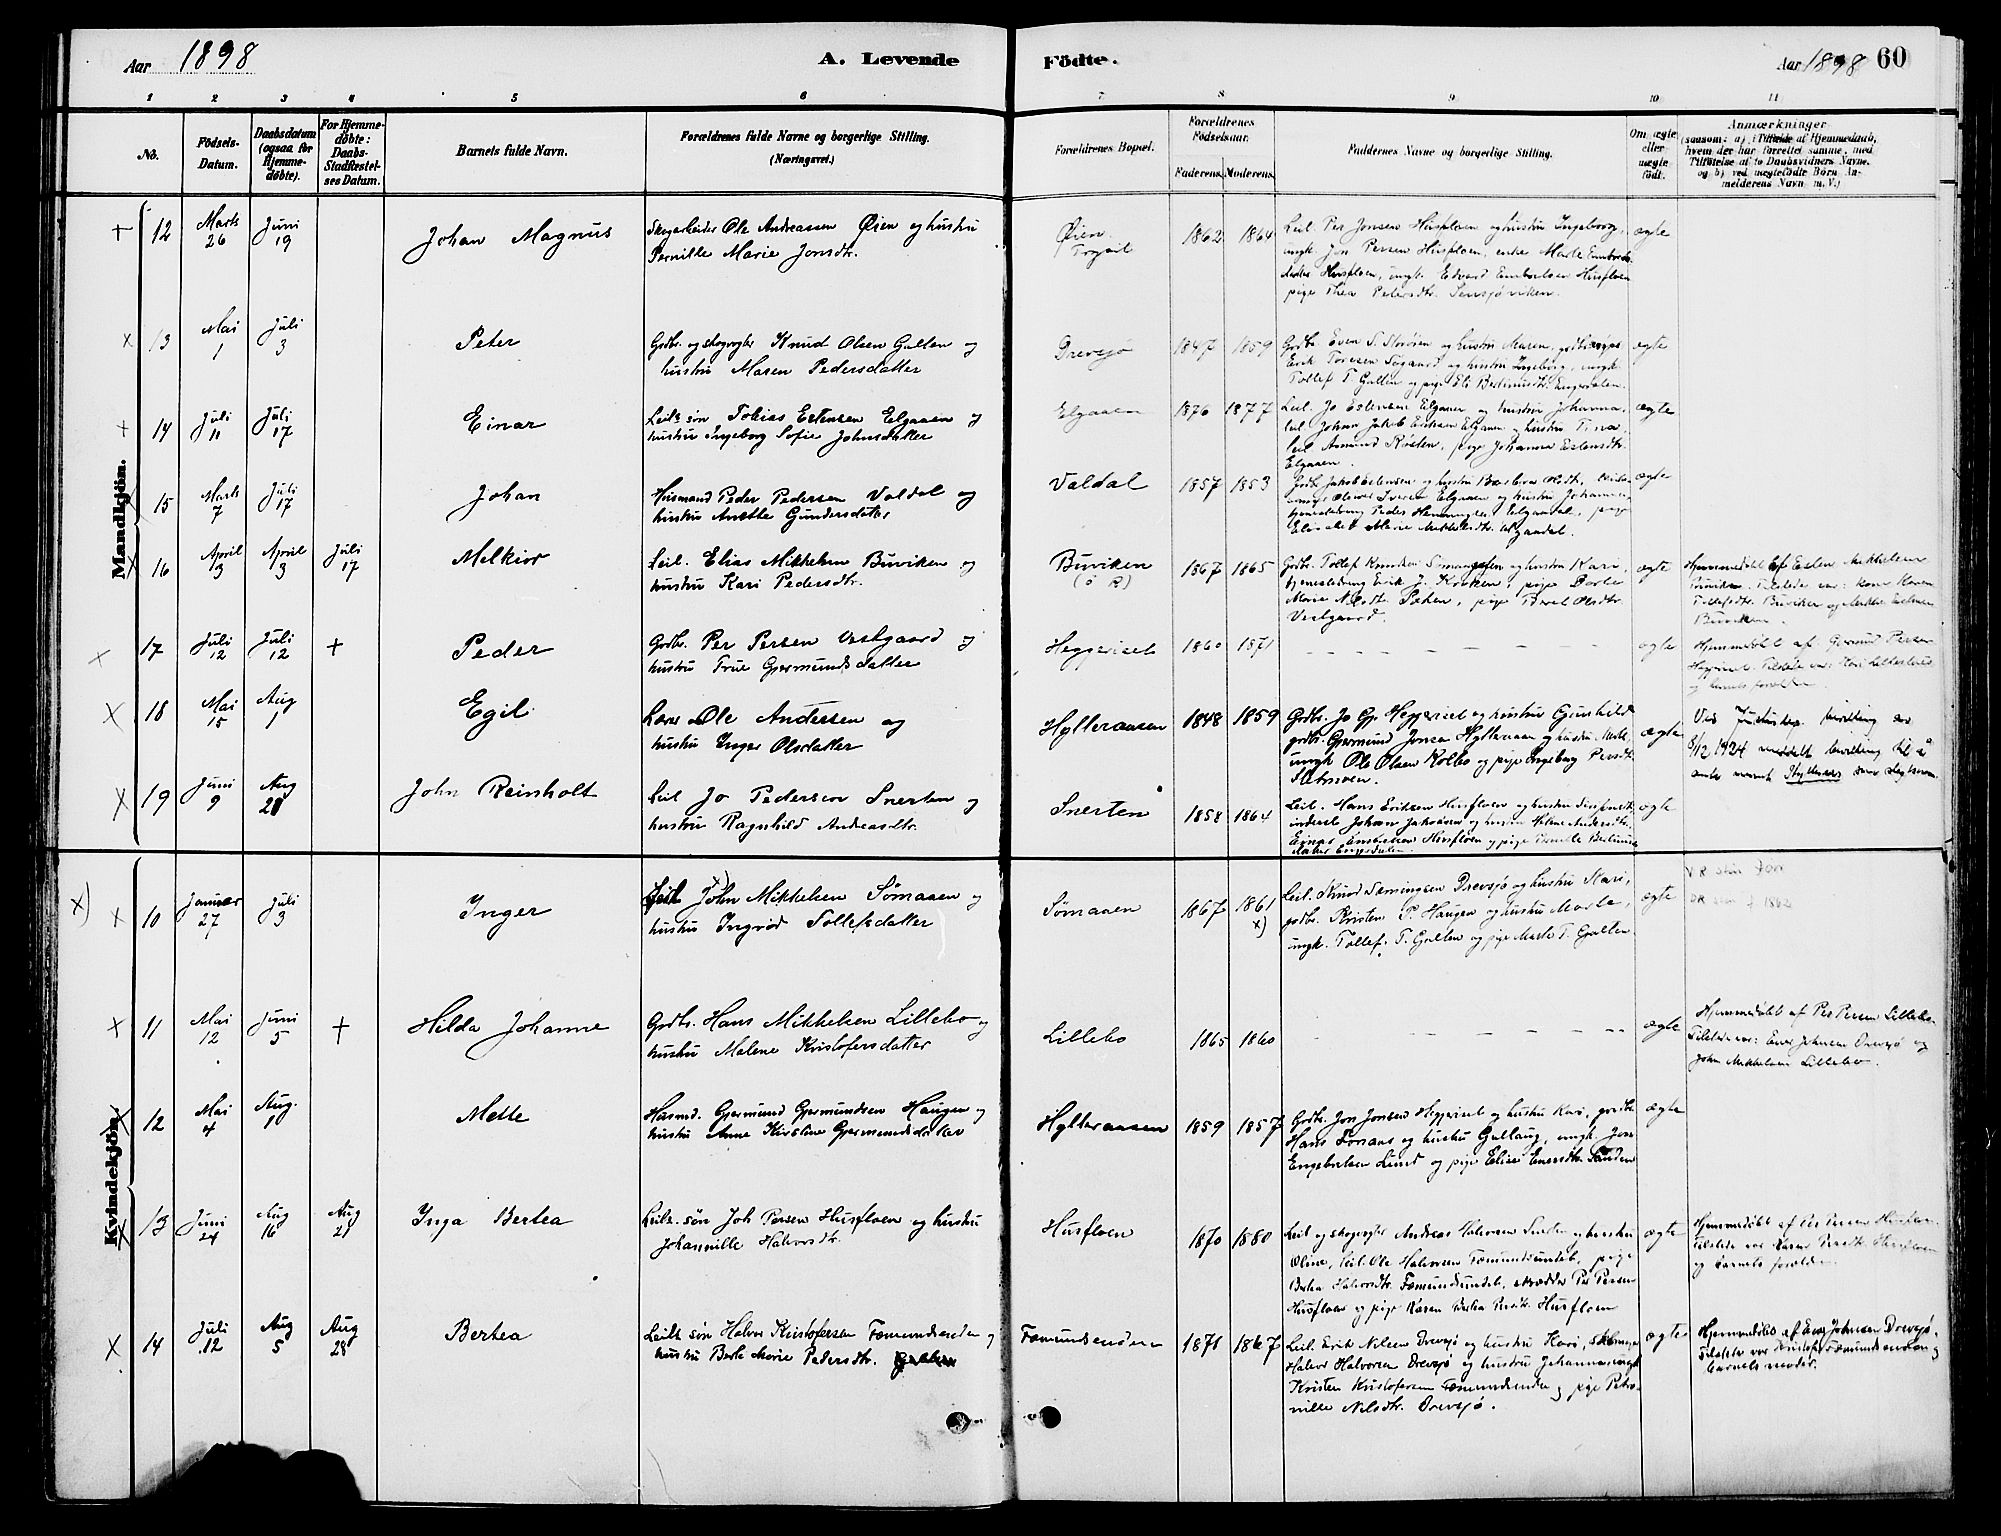 Aar 1898
A. Levende
Födte.
Aar 1898
60
1 2 3 4 5 6 7 8 9 10 11
No.
Födsels-
Datum.
Daabsdatum
(ogsaa for
Hjemme-
döbte).
For Hjemme-
döbte:
Daabs-
Stadfæstel-
ses Datum.
Barnets fulde Navn.
Forældrenes fulde Navne og borgerlige Stilling.
(Næringsvei.)
Forældrenes Bopæl.
Forældrenes
Födselsaar.
Faderens. Moderens.
Faddernes Navne og borgerlige Stilling.
Om ægte
eller
uægte
födt.
Anmærkninger
(saasom: a) i Tilfælde af Hjemmedaab,
hvem der har forrettet samme, med
Tilföielse af to Daabsvidners Navne,
og b) ved uægtefödte Börn An-
melderens Navn m. V.)
Mandkjön.
12 Marts 26 Juni 19 Johan Magnus
Skogarbeider Ole Andreassen Øien og hustru
Pernille Marie Jonsdtr.
Øien
Trysil
1862 1864
Leil. Per Jonsen Husfloen og hustru Ingeborg,
ungk. Jon Persen Husfloen, enke Marte Embrets-
datter Husfloen, ungk. Edvard Embretsen Husfloen
pige Thea Petersdtr. Sensjøviken.
ægte
13 Mai 1 Juli 3 Peter
Grdbr. og skogvogter Knud Olsen Galten og
hustru Maren Pedersdatter
Drevsjø
1847 1859
Grdbr. Even S. Storøien og hustru Maren,
Erik Toresen Søgaard og hustru Ingeborg, ungk.
Tollef T. Galten og pige Eli Bertinusdtr. Engerdalen.
ægte
14 Juli 11 Juli 17 Einar
Leils søn Tobias Estensen Elgaaen og
hustru Ingeborg Sofie Johnsdatter
Elgaaen
1876 1877
Leil. Jo Estensen Elgaaen og hustru Johanna,
leil. Johan Jakob Eriksen Elgaaen og hustru Tina,
leil Amund Røsten, pige Johanna Estensdtr.
Elgaaen.
ægte
15 Marts 7 Juli 17 Johan
Husmand Peder Pedersen Valdal og
hustru Anette Gundersdatter
Valdal
1857 1853
Grdbr. Jakob Estensen og hustru Barbra Olsdtr,
Iversen Elgaaen og hustru Johanne,
Peder Henningsen, pige
Elisabet Marie Mikkelsdtr.
ægte
16 April 3 April 3 Juli 17 Melkior
Leil. Elias Mikkelsen Buviken og
hustru Kari Pedersdtr.
Buviken
1867 1865
Grdbr. Tollef Knudsen Sømaaen og hustru Kari,
Erik J. Kroken, pige Dorte
Marie Nilsdtr. Sæter, pige Berit Olsdtr.
Vestgaard.
ægte
Hjemmedøbt af Esten Mikkelsen
Buviken. Tilstede var: kone Karen
Tollefsdtr. Buviken og Mikkel Estensen
Buviken.
17 Juli 12 Juli 12 + Peder
Grdbr. Per Persen Vestgaard og
hustru True Gjermundsdatter
Heggeriset
1860 1871
ægte
Hjemmedøbt af Gjermund Persen
Heggeriset. Tilstede var: Kari
og barnets forældre.
18 Mai 15 Aug 1 Egil
Lærer Ole Andersen og
hustru Inger Olsdatter
Hylleraasen
1848 1859
Grdbr. Jo Gj. Heggeriset og hustru Gunhild
grdbr. Gjermund Jonsen Hylleraasen og hustru Marte,
ungk Ole Olsen Kolbo og pige Ingeborg Persdtr.
ægte
Ved Justisdep. bevilling av
5/12 1924 meddelt bevilling til å
anta navnet Hylleraas som slegtsnavn.
19 Juni 9 Aug 28 John Reinholt
Leil Jo Pedersen Snerten og
hustru Ragnhild Andreasdtr.
Snerten
1858 1864
Leil. Hans Eriksen Husfloen og hustru
inderst Johan Jakobsen og hustru Helene Andersdtr.
Einar Embretsen Husfloen og pige Pernille Bertinus-
datter Engerdalen.
ægte
Kvindekjön.
10 Januar 27 Juli 3 Inger
Leil John x) Mikkelsen Sømaaen og
hustru Ingrid Tollefsdatter
Sømaaen
1867 1861 x)
Leil. Knud Sæmingsen Drevsjø og hustru Kari,
grdbr. Kristen P. Haugen og hustru Marte,
ungk. Tollef T. Galten og pige Marte T. Galten
ægte
11 Mai 12 Juni 5 + Hilda Johanne
Grdbr. Hans Mikkelsen Lillebo og
hustru Malene Kristofersdatter
Lillebo
1865 1860
ægte
Hjemmedøbt af Per Persen Lillebo.
Tilstede var: Ener Johnsen Drevsjø og
John Mikkelsen Lillebo.
12 Mai 4 Aug. 1 Mette
Husmd. Gjermund Gjermundsen Haugen og
hustru Anne Kirstine Gjermundsdatter
Hylleraasen
1859 1857
Grdbr. Jon Jonsen Heggeriset og hustru Kari, grdbr.
Hans Fonaas og hustru Gullaug, ungk. Jon
Engebretsen Lund og pige Elise Enersdtr. Sanden
ægte
13 Juni 24 Aug 16 Aug 21 Inga Bertea
Leils. søn Joh Persen Husfloen og hustru
Johannille Halvorsdtr.
Husfloen
1870 1880
Leil og skogvogter Andreas Halvorsen Snerten og hustru
Oline, leil. Ole Halvorsen Fæmundsundet, pige
Berthea Halvorsdtr. Fæmundsundet, skrædder Per Persen
Husfloen og pige Karen Bertea Persdtr. Husfloen
ægte
Hjemmedøbt af Per Persen Husfloen.
Tilstede var Karen Persdtr. Husfloen
og barnets forældre.
14 Juli 12 Aug 5 Aug 28 Bertea
Leils søn Halvor Kristofersen Fæmundsenden og
hustru Berte Marie Pedersdtr.
Fæmundsenden
1871 1867
Leil. Erik Nilsen Drevsjø og hustru Kari,
Halvor Halvorsen Drevsjø og hustru Johanna, ungk
Kristen Kristofersen Fæmundsenden og pige Petro-
nille Nilsdtr. Drevsjø.
ægte
Hjemmedøbt af Ener Johnsen Drevsjø.
Tilstede var Kristofer Fæmundsenden og
barnets moder.